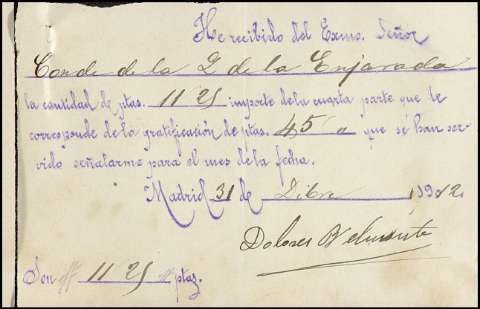 He recibido del Exmo. Señor
Conde de la Q de la Enjarada
la cantidad de ptas. 11 25 importe de la cuarta parte que le
corresponde de la gratificación de ptas. 45 " que se han ser-
vido señalarme para el mes de la fecha.
Madrid 31 de Dibre 190
Dolores Belmonte
Son 11 25 ptas.